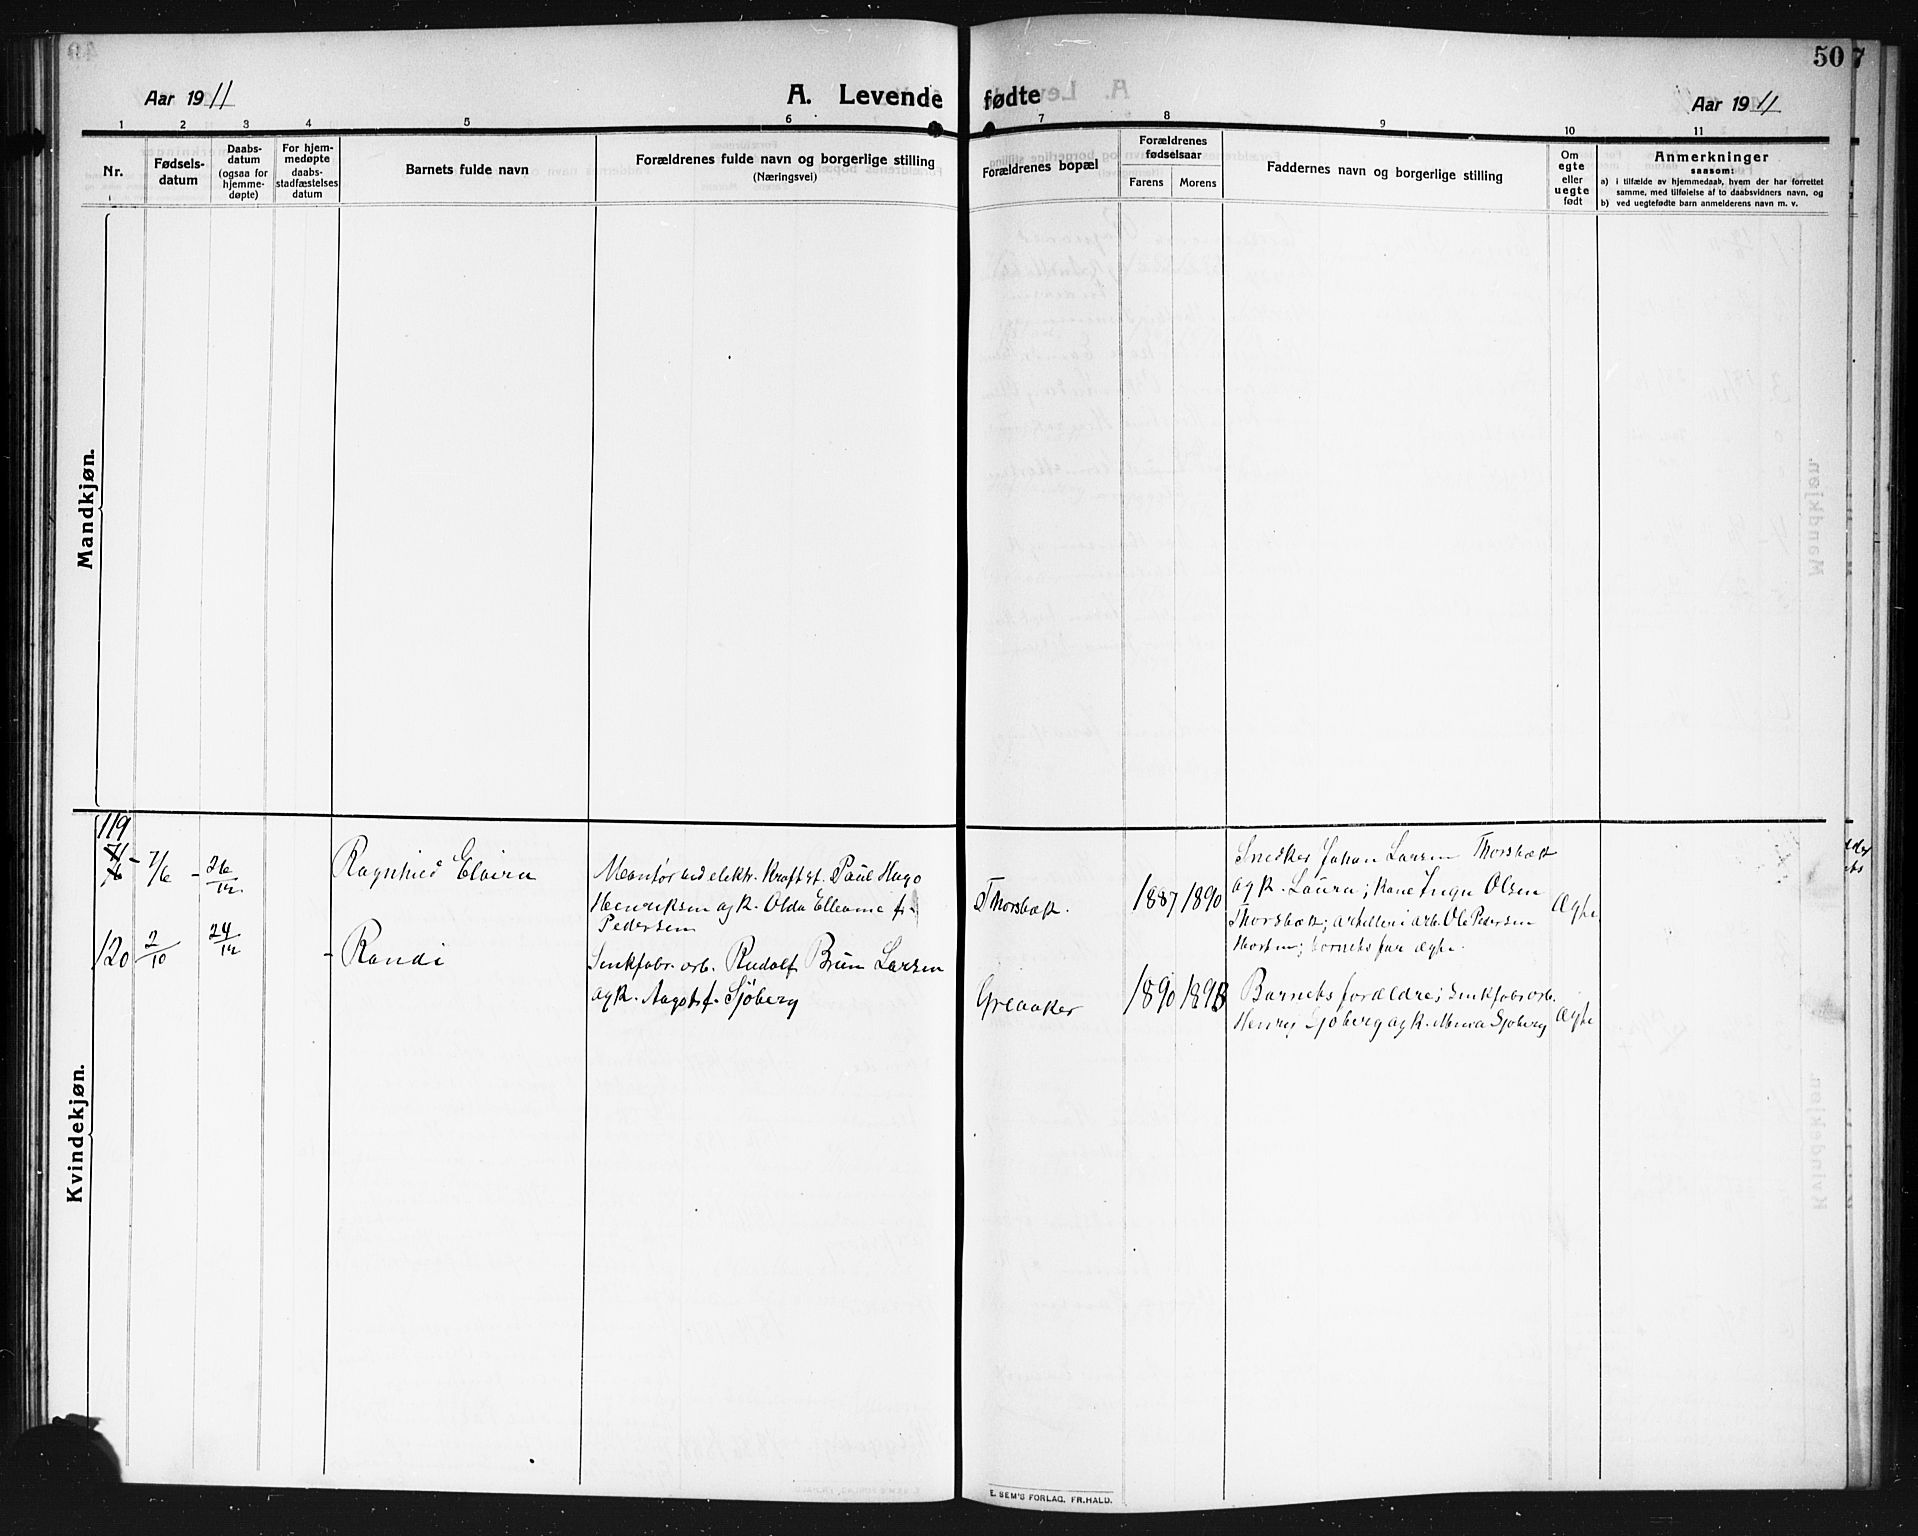 50
7
Aar 1911
A. Levende fødte
Aar 1911
1 2 3 4 5 6 7 8 9 10 11
Nr.
Fødsels-
datum
Daabs-
datum
(ogsaa for
hjemme-
døpte)
For hjem-
medøpte
daabs-
stadfæstelses
datum
Barnets fulde navn
Forældrenes fulde navn og borgerlige stilling
(Næringsvei)
Forældrenes bopæl
Forældrenes
fødselsaar
Farens
Morens
Faddernes navn og borgerlige stilling
Om
egte
eller
uegte
født
Anmerkninger
saasom:
a) i tilfælde av hjemmedaab, hvem der har forrettet
samme, med tilføielse af to daabsvidners navn, og
b) ved uegtefødte barn anmelderens navn m. v.
Mandkjøn.
Kvindekjøn.
119
7/6
26/12
Ragnhild Elvira
Montør ved elektr. Kraftst. Paul Hugo
Henriksen og k. Olda f.
Pedersen
Thorsbæk.
1887 1890
Snedker Johan Larsen Thorsbæk
og k. Laura; Kone Inga Olsen
Thorsbæk; arb. Ole Pedersen
barnets far
Ægte
120
2/10
24/12
Randi
arb. Rudolf Brun Larsen
og k. Aagot f. Sjöberg
Greaaker
1890 1893
Barnets forældre;
Henry Sjöberg og k. Sjöberg
Ægte
E. SEM'S FORLAG, FR.HALD.